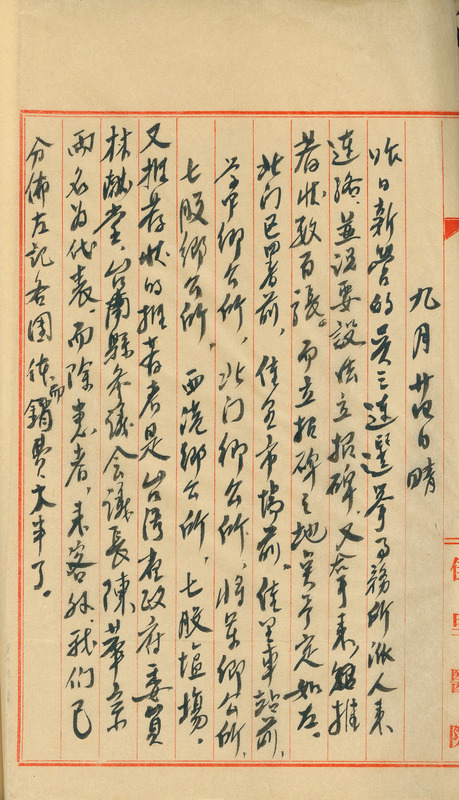 九月廿四日 晴
昨日新營的吳三連選舉事務所派人來
連絡、並說要設法立招碑、又拿來推
荐狀數百張。而立招碑之地算予定如左。
北门區署前、佳里市場前、佳里車站前、
學甲鄉公所、北门鄉公所、將軍鄉公所、
七股鄉公所、西港鄉公所、七股塩場。
又推荐狀的推荐者是台灣省政府委員
林献堂、台南縣參議會議長陳華宗
兩名为代表、而除患者、来客外我们已
分佈左記各團体而銷費大半了。
佳里醫院